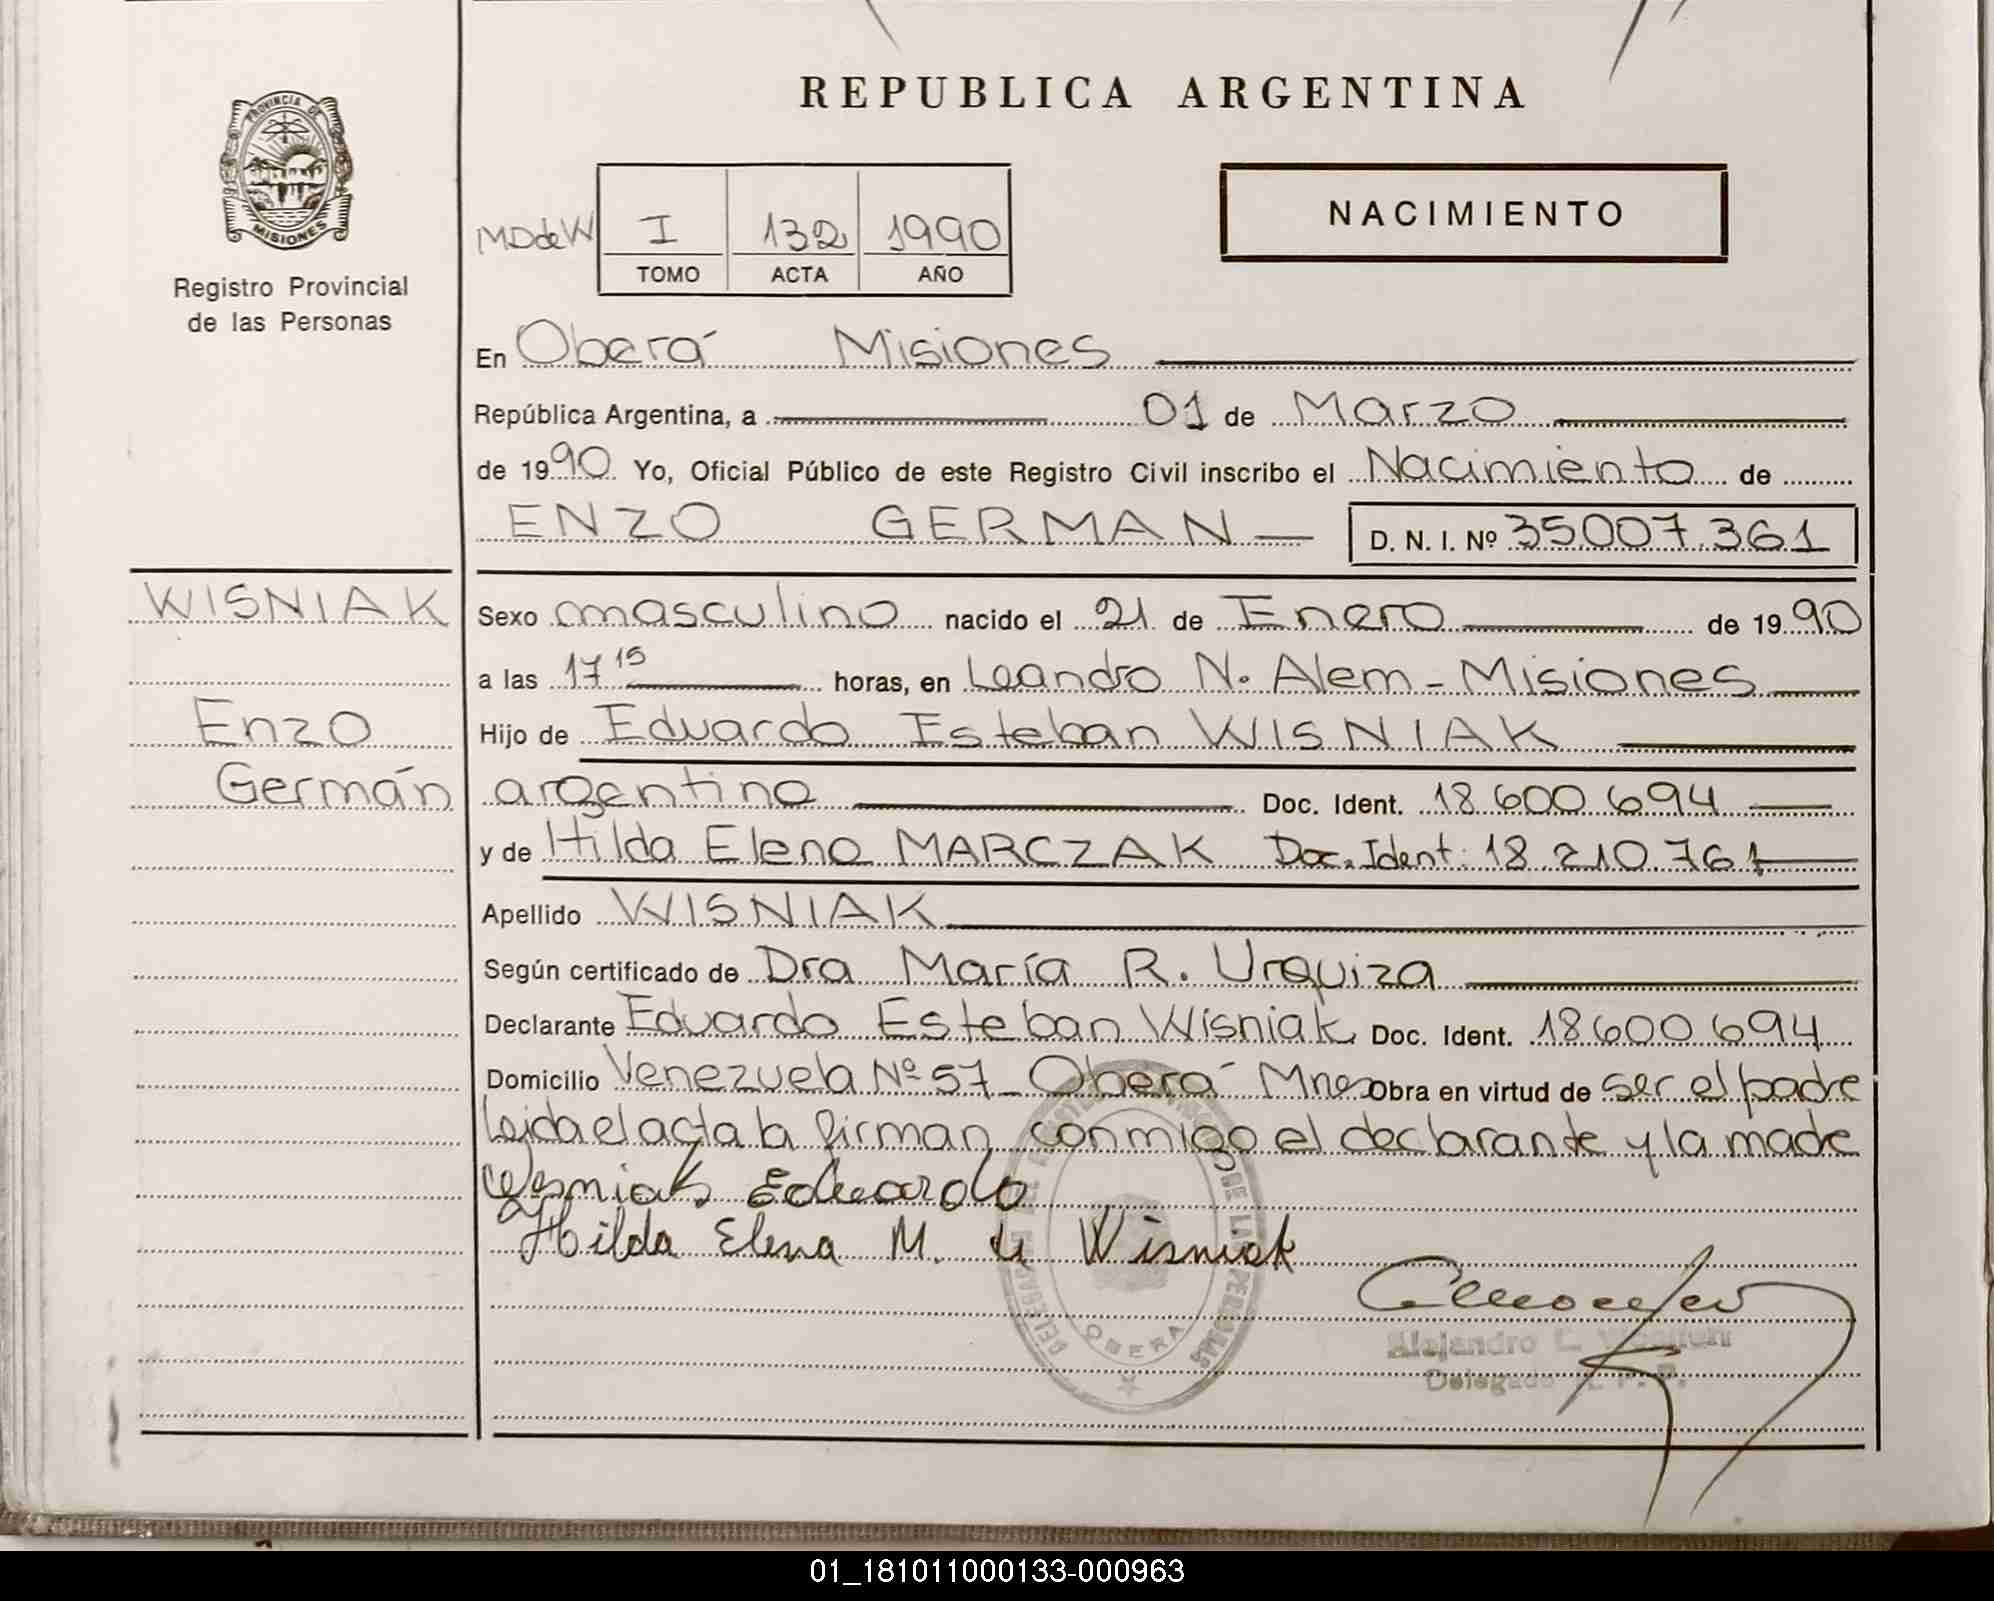 REPUBLICA ARGENTINA
PROVINCIA DE
MISIONES
Registro Provincial
de las Personas
NACIMIENTO
MDdeW I 132 1990
TOMO ACTA AÑO
En Oberá Misiones
República Argentina, a 01 de Marzo
de 1990 Yo, Oficial Público de este Registro Civil inscribo el Nacimiento de
ENZO GERMAN D. N. I. Nº 35.007.361
WISNIAK
Enzo
Germán
Sexo masculino nacido el 21 de Enero de 1990
a las 17 15 horas, en Leandro N. Alem - Misiones
Hijo de Eduardo Esteban WISNIAK
argentino Doc. Ident. 18.600.694
y de Hilda Elena MARCZAK Doc. Ident: 18.210.761
Apellido WISNIAK
Según certificado de Dra María R. Urquiza
Declarante Eduardo Esteban Wisniak Doc. Ident. 18.600.694
Domicilio Venezuela Nº 57 - Oberá Mnes Obra en virtud de ser el padre
Leida el acta la firman conmigo el declarante y la madre
Wisniak Eduardo
Hilda Elena M. de Wisniak
OBERA
Alejandro
Delegado R. P. P.
01_181011000133-000963